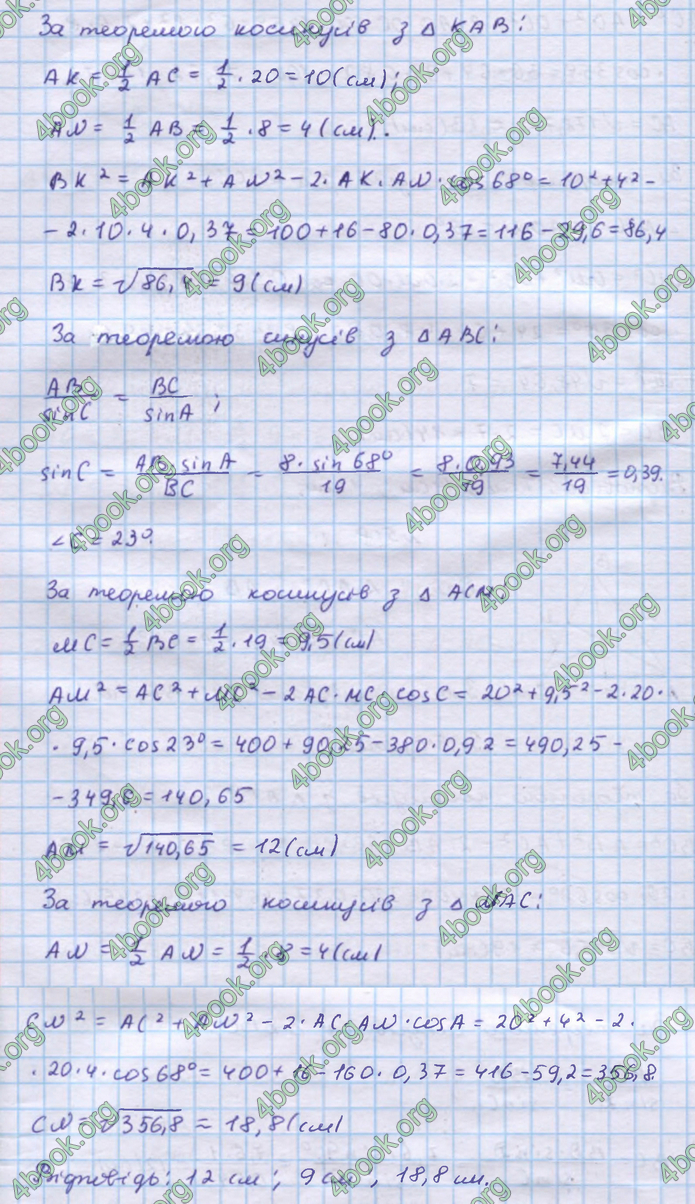 За теоремою косинусів з △ KAB:
AK = 1/2 AC = 1/2 · 20 = 10 (см);
AN = 1/2 AB = 1/2 · 8 = 4 (см).
BK² = AK² + AN² - 2 · AK · AN · cos 68° = 10² + 4² -
- 2 · 10 · 4 · 0,37 = 100 + 16 - 80 · 0,37 = 116 - 29,6 = 86,4
BK = √86,4 = 9 (см)
За теоремою синусів з △ ABC:
AB/sinC = BC/sinA ;
sinC = AB · sinA/BC = 8 · sin 68°/19 = 8 · 0,93/19 = 7,44/19 = 0,39.
∠C = 23°.
За теоремою косинусів з △ ACM:
MC = 1/2 BC = 1/2 · 19 = 9,5 (см)
AM² = AC² + MC² - 2 AC · MC · cosC = 20² + 9,5² - 2 · 20 ·
· 9,5 · cos 23° = 400 + 90,25 - 380 · 0,92 = 490,25 -
- 349,6 = 140,65
AM = √140,65 = 12 (см)
За теоремою косинусів з △ NAC:
AN = 1/2 AN = 1/2 · 8 = 4 (см)
CN² = AC² + AN² - 2 · AC · AN · cosA = 20² + 4² - 2 ·
· 20 · 4 · cos 68° = 400 + 16 - 160 · 0,37 = 416 - 59,2 = 356,8.
CN = √356,8 = 18,8 (см)
Відповідь: 12 см; 9 см; 18,8 см.
4book.org